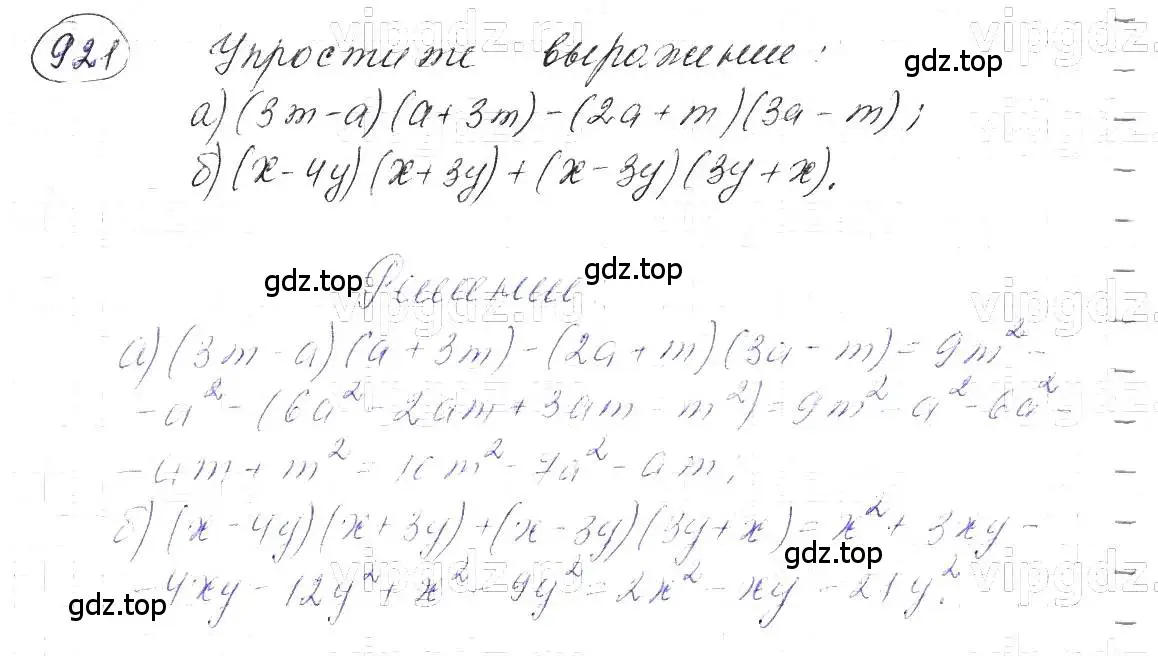 921 Упростите выражение:
а) (3m - a)(a + 3m) - (2a + m)(3a - m);
б) (x - 4y)(x + 3y) + (x - 3y)(3y + x).
gdz.top
gdz.top Решение gdz.top
а) (3m - a)(a + 3m) - (2a + m)(3a - m) = 9m² -
- a² - (6a² - 2am + 3am - m²) = 9m² - a² - 6a² -
- am + m² = 10m² - 7a² - am;
б) (x - 4y)(x + 3y) + (x - 3y)(3y + x) = x² + 3xy -
gdz.top
- 4xy - 12y² + x² - 9y² = 2x² - xy - 21y².
gdz.top
vipgdz.ru